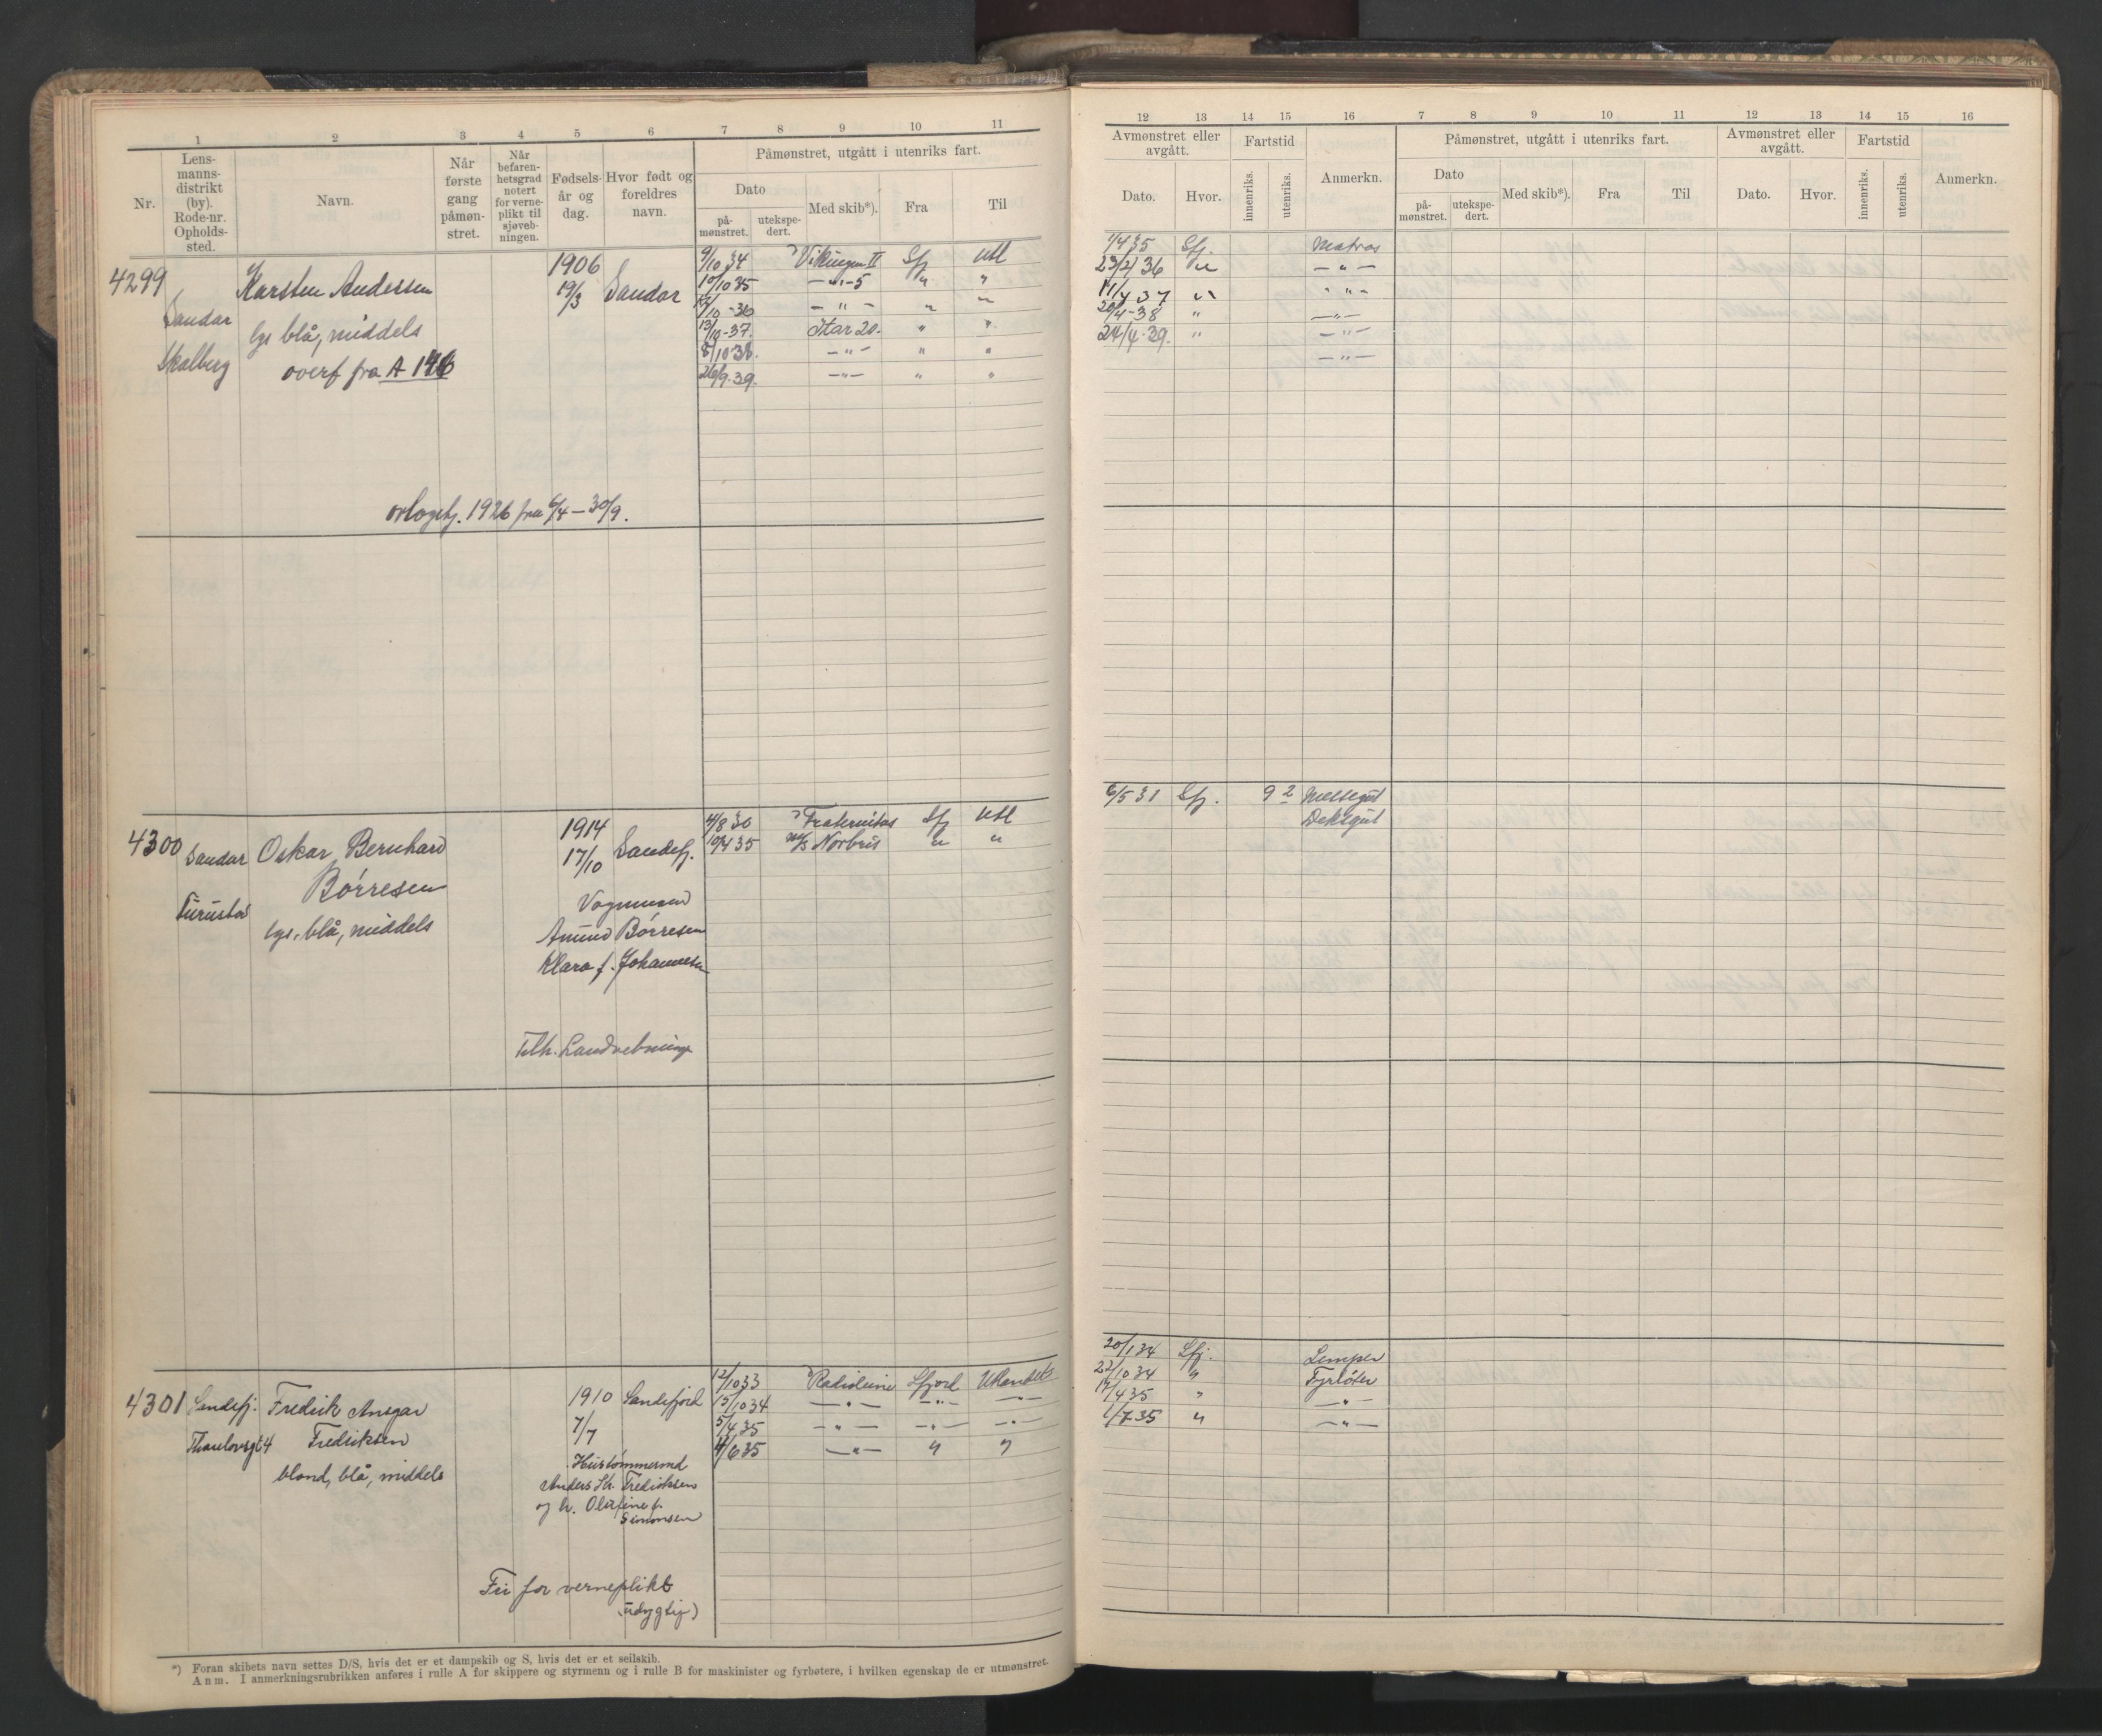 1 2 3 4 5 6 7 8 9 10 11
Nr.
Lens-
manns-
distrikt
(by).
Rode-nr.
Opholds-
sted.
Navn.
Når
første
gang
påmøn-
stret.
Når
befaren-
hetsgrad
notert
for verne-
plikt til
sjøveb-
ningen.
Fødsels-
år og
dag.
Hvor født og
foreldres
navn.
Påmønstret, utgått i utenriks fart.
Dato
på-
mønstret.
utekspe-
dert.
Med skib*).
Fra
Til
4299
Sandar
Skolberg
Karsten Andersen
lys blå, middels
overf fra A 146
1906
19/3
Sandar
9/10 34 Vikingen II Sfj Utl
10/10 35 — " — 5 " "
12/10 -36 — " — " "
13/10 -37. Star 20. " "
8/10 38. — " — " "
26/9. 39. — " — " "
orlogstj. 1926 fra 6/4 — 30/9.
4300
Sandar
Furustad
Oskar Bernhard
Børresen
lys, blå, middels
1914
17/10
Sandefj.
Vognmand
Amund Børresen
Klara f. Johannesen
4/8 30 Fraternitas Sfj Utl
10/4 35 M/S Norbris " "
Tilh. Landvebningen
4301
Sandefj.
Thaulowsgt 4
Fredrik Ansgar
Fredriksen
blond, blå, middels
1910
7/7
Sandefjord
Hustømmermd
Anders Kr. Fredriksen
og h. Olefine f.
Simonsen
12/10 33 Radioleine Sfjord Utlandet
15/10 34 — " — — " — — " —
5/4 35 — " — — " — — " —
4/6 35 — " — " "
Fri for verneplikt
(udygtig)
*) Foran skibets navn settes D/S, hvis det er et dampskib og S, hvis det er et seilskib.
Anm. I anmerkningsrubrikken anføres i rulle A for skippere og styrmenn og i rulle B for maskinister og fyrbøtere, i hvilken egenskap de er utmønstret.
12 13 14 15 16 7 8 9 10 11 12 13 14 15 16
Avmønstret eller
avgått.
Dato.
Hvor.
Fartstid
innenriks.
utenriks.
Anmerkn.
Påmønstret, utgått i utenriks fart.
Dato
på-
mønstret.
utekspe-
dert.
Med skib*).
Fra
Til
Avmønstret eller
avgått.
Dato.
Hvor.
Fartstid
innenriks.
utenriks.
Anmerkn.
1/4 35 Sfj. Matros
23/2 36 " — " —
11/4 37 " " " —
20/4 -38 " — " —
24/4. 39. " — " —
— " —
6/5 31 Sfj. 9 2 Messegut
Deksgut
20/1 34 Sfj. Lemper
22/10 34 " Fyrbøter
17/4 35 " — " —
1/7 35 " — " —